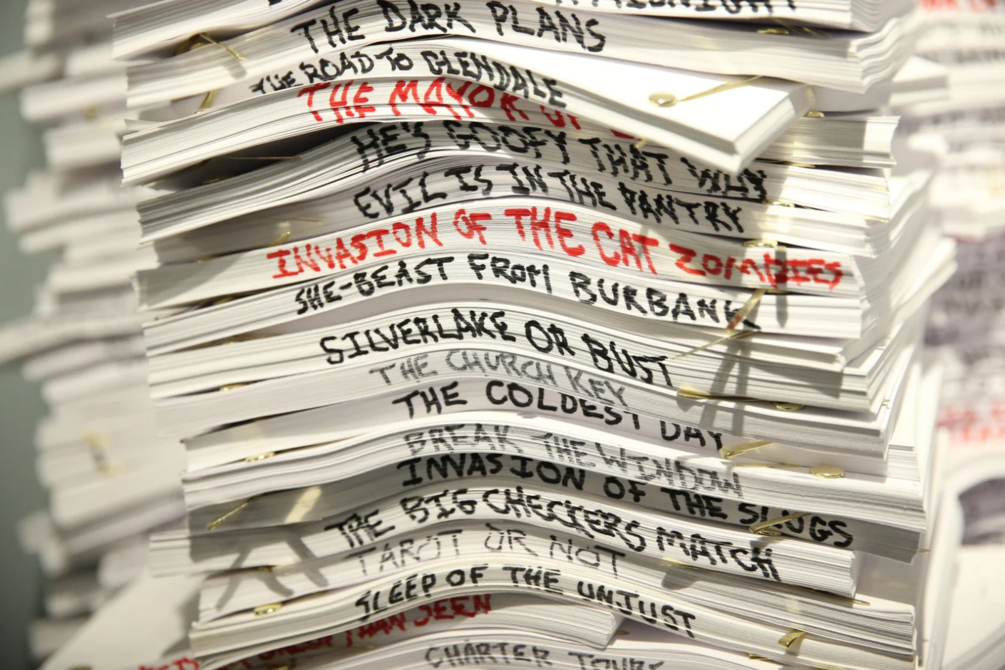 THE DARK PLANS
THE ROAD TO GLENDALE
THE MAYOR OF
HE'S GOOFY THAT WHY
EVIL IS IN THE PANTRY
INVASION OF THE CAT ZOMBIES
SHE-BEAST FROM BURBANK
SILVERLAKE OR BUST
THE CHURCH KEY
THE COLDEST DAY
BREAK THE WINDOW
INVASION OF THE SLUGS
THE BIG CHECKERS MATCH
TAROT OR NOT
SLEEP OF THE UNJUST
THAN SEEN
CHARTER TOURS